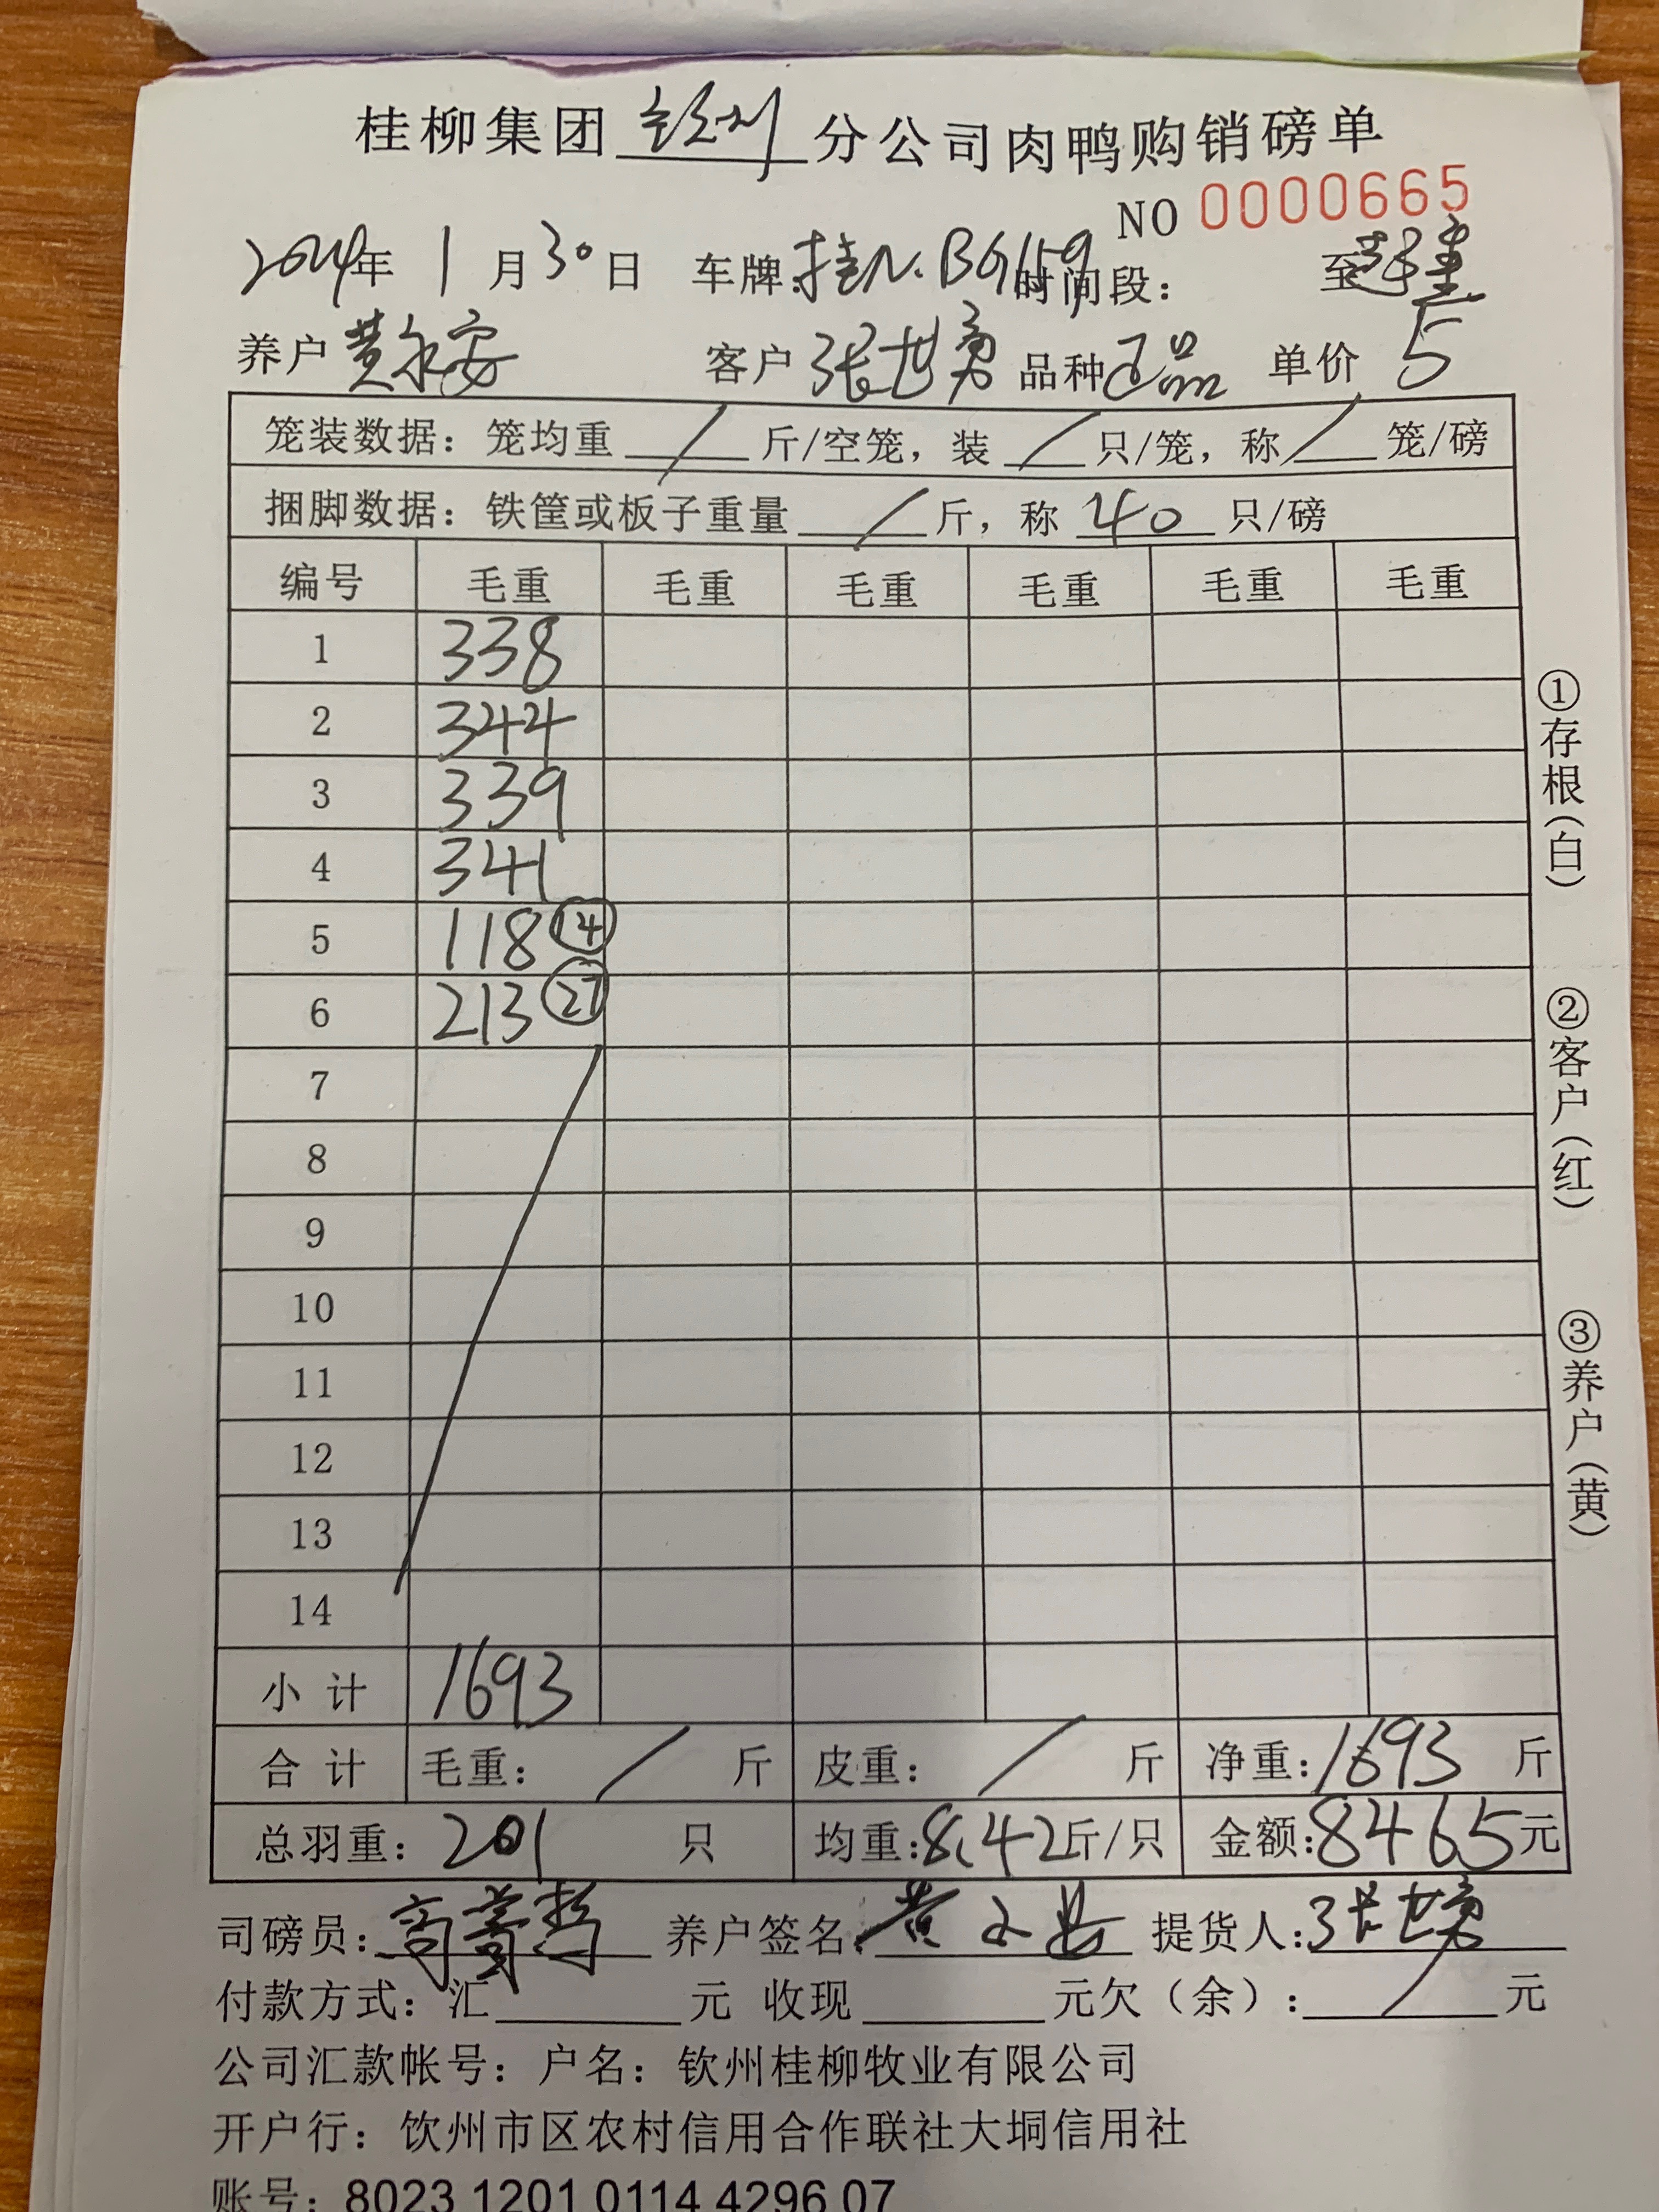 桂柳集团 钦州 分公司肉鸭购销磅单
NO 0000665
2024年 1 月 30 日 车牌:桂N.BG159 时间段: 至
养户 黄永安 客户 张世勇 品种 正品 单价 5
笼装数据：笼均重 / 斤/空笼，装 / 只/笼，称 / 笼/磅
捆脚数据：铁筐或板子重量 / 斤，称 40 只/磅
编号 毛重 毛重 毛重 毛重 毛重 毛重
1 338
2 344
3 339
4 341
5 118 ⑭
6 213 ㉗
7
8
9
10
11
12
13
14
小计 1693
合计 毛重： / 斤 皮重： / 斤 净重：1693 斤
总羽重：201 只 均重：8.42斤/只 金额：8465元
司磅员： 养户签名： 黄永安 提货人：张世勇
付款方式：汇 元 收现 元欠（余）： / 元
公司汇款帐号：户名：钦州桂柳牧业有限公司
开户行：钦州市区农村信用合作联社大垌信用社
账号：8023 1201 0114 4296 07
①存根（白）
②客户（红）
③养户（黄）